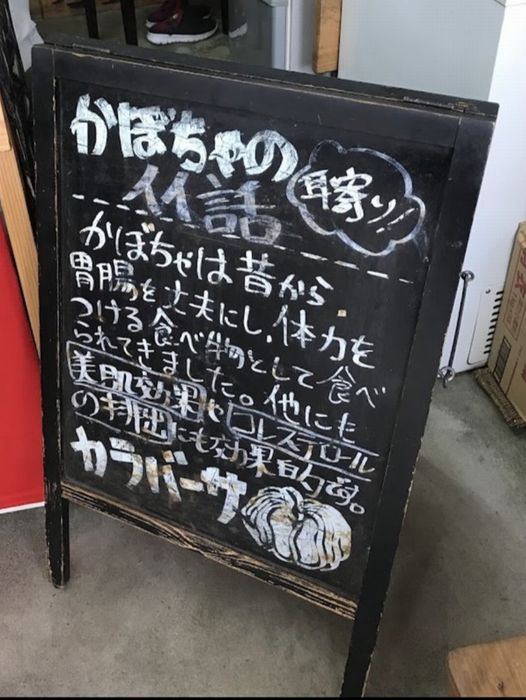 かぼちゃの
イイ話
耳寄り!!
かぼちゃは昔から
胃腸を丈夫にし、体力を
つける食べ物として食べ
られてきました。他にた
美肌効果やコレステロール
の排出にも効果的です。
カラバーサ